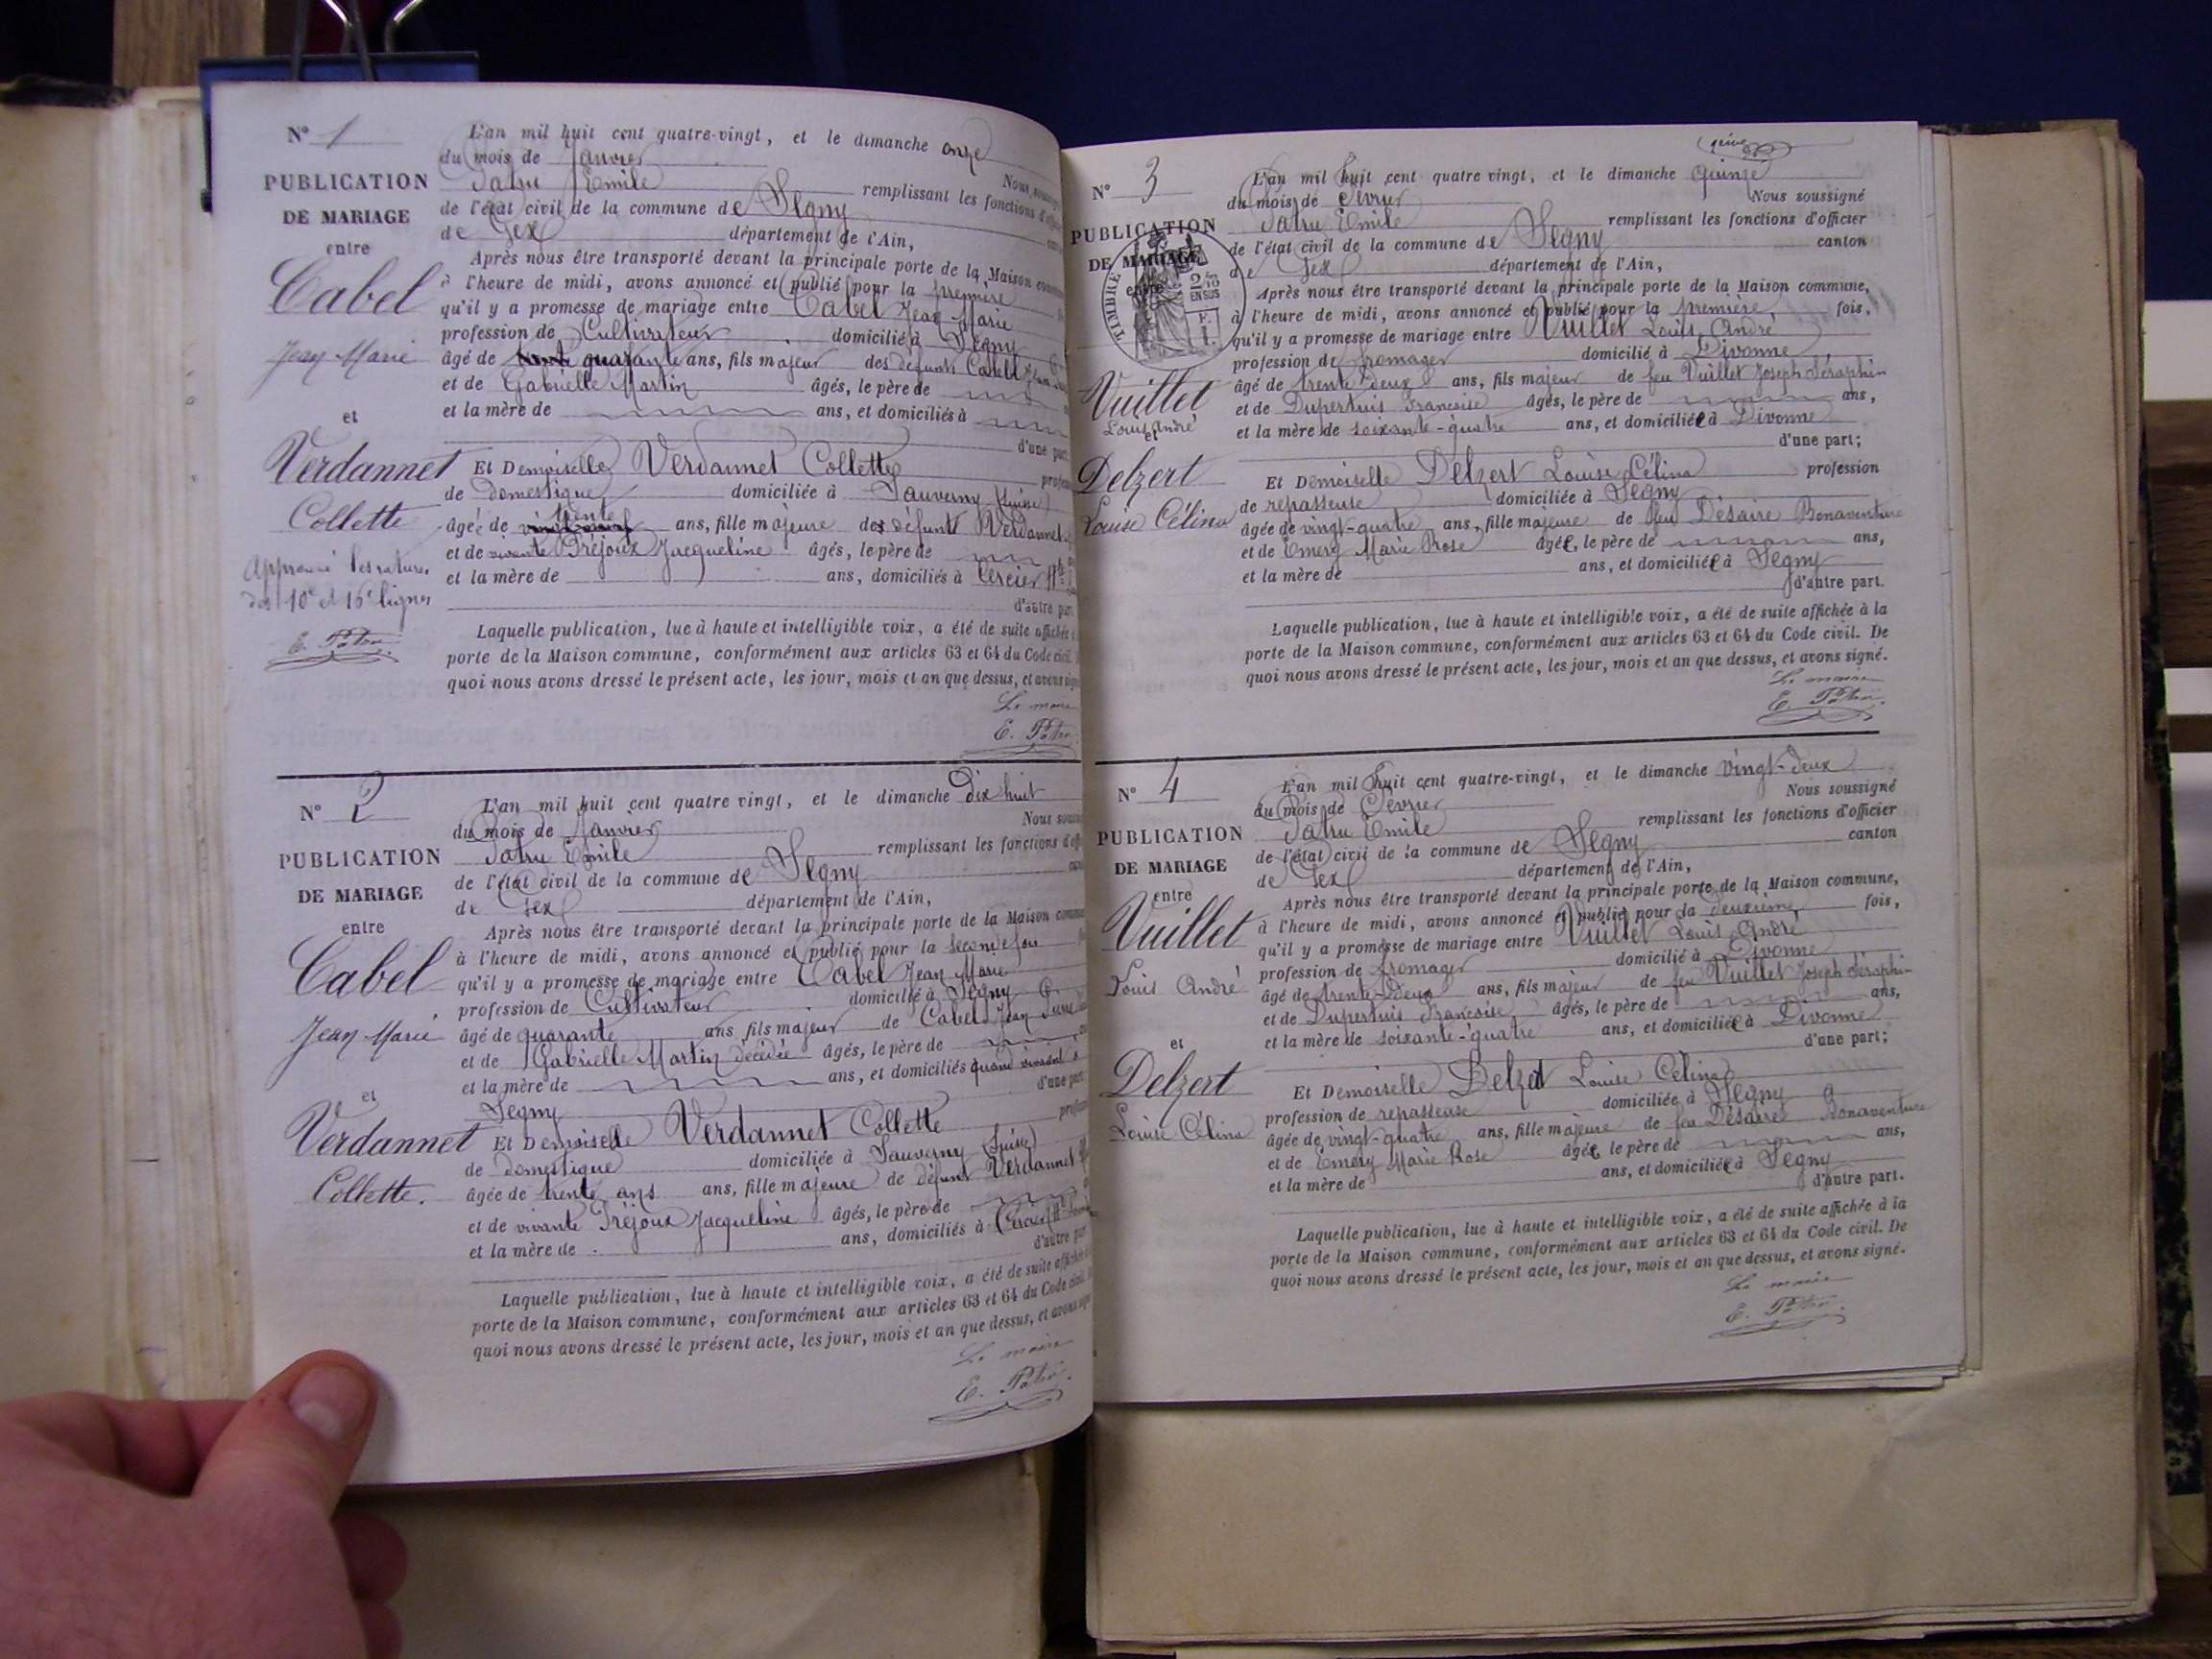 N° 1
PUBLICATION
DE MARIAGE
entre
Cabel
Jean Marie
et
Verdannet
Collette
Approuvé les ratures
des 10e et 16e lignes
E. Patru
L'an mil huit cent quatre-vingt, et le dimanche onze
du mois de Janvier Nous
Patru Emile remplissant les fonctions
de l'état civil de la commune de Segny
de Gex département de l'Ain,
Après nous être transporté devant la principale porte de la Maison
à l'heure de midi, avons annoncé et publié pour la première
qu'il y a promesse de mariage entre Cabel Jean Marie
profession de Cultivateur domicilié à Segny
âgé de quarante ans, fils majeur des défunts Cabel
et de Gabrielle Martin âgés, le père de
et la mère de ans, et domiciliés à
d'une part
Et Demoiselle Verdannet Collette
de domestique domiciliée à Sauverny (Suisse)
âgée de trente ans, fille majeure des défunt Verdannet
et de vivante Tréjoux Jacqueline âgés, le père de
et la mère de ans, domiciliés à Cercier
d'autre part
Laquelle publication, lue à haute et intelligible voix, a été de suite affichée
porte de la Maison commune, conformément aux articles 63 et 64 du Code civil.
quoi nous avons dressé le présent acte, les jour, mois et an que dessus, et avons
Le maire
E. Patru
N° 2
PUBLICATION
DE MARIAGE
entre
Cabel
Jean Marie
et
Verdannet
Collette.
L'an mil huit cent quatre vingt, et le dimanche dix huit
du mois de Janvier Nous
Patru Emile remplissant les fonctions
de l'état civil de la commune de Segny
de Gex département de l'Ain,
Après nous être transporté devant la principale porte de la Maison
à l'heure de midi, avons annoncé et publié pour la seconde fois
qu'il y a promesse de mariage entre Cabel Jean Marie
profession de Cultivateur domicilié à Segny
âgé de quarante ans fils majeur de Cabel Jean
et de Gabrielle Martin décédée âgés, le père de
et la mère de ans, et domiciliés quand vivaient à
Segny d'une part
Et Demoiselle Verdannet Collette
de domestique domiciliée à Sauverny (Suisse)
âgée de trente ans ans, fille majeure de défunt Verdannet
et de vivante Tréjoux Jacqueline âgés, le père de
et la mère de ans, domiciliés à Cercier
d'autre part
Laquelle publication, lue à haute et intelligible voix, a été de suite
porte de la Maison commune, conformément aux articles 63 et 64 du Code
quoi nous avons dressé le présent acte, les jour, mois et an que dessus, et avons
Le maire
E. Patru
N° 3
PUBLICATION
DE MARIAGE
entre
TIMBRE
EN SUS
Vuillet
Louis André
et
Delzert
Louise Célina
L'an mil huit cent quatre vingt, et le dimanche quinze
du mois de Févrer Nous soussigné
Patru Emile remplissant les fonctions d'officier
de l'état civil de la commune de Segny canton
de Gex département de l'Ain,
Après nous être transporté devant la principale porte de la Maison commune,
à l'heure de midi, avons annoncé et publié pour la première fois,
qu'il y a promesse de mariage entre Vuillet Louis André
profession de fromager domicilié à Divonne
âgé de trente deux ans, fils majeur de feu Vuillet Joseph Séraphin
et de Dupertuis Françoise âgés, le père de ans,
et la mère de soixante-quatre ans, et domiciliée à Divonne
d'une part;
Et Demoiselle Delzert Louise Célina profession
de repasseuse domiciliée à Segny
âgée de vingt-quatre ans, fille majeure de feu Désaire Bonaventure
et de Emery Marie Rose âgée, le père de ans,
et la mère de ans, et domiciliée à Segny
d'autre part.
Laquelle publication, lue à haute et intelligible voix, a été de suite affichée à la
porte de la Maison commune, conformément aux articles 63 et 64 du Code civil. De
quoi nous avons dressé le présent acte, les jour, mois et an que dessus, et avons signé.
Le maire
E. Patru
N° 4
PUBLICATION
DE MARIAGE
entre
Vuillet
Louis André
et
Delzert
Louise Célina
L'an mil huit cent quatre-vingt, et le dimanche vingt-deux
du mois de Fevrier Nous soussigné
Patru Emile remplissant les fonctions d'officier
de l'état civil de la commune de Segny canton
de Gex département de l'Ain,
Après nous être transporté devant la principale porte de la Maison commune,
à l'heure de midi, avons annoncé et publié pour la deuxième fois,
qu'il y a promesse de mariage entre Vuillet Louis André
profession de fromager domicilié à Divonne
âgé de trente-deux ans, fils majeur de feu Vuillet Joseph Séraphin
et de Dupertuis Françoise âgés, le père de ans,
et la mère de soixante-quatre ans, et domiciliée à Divonne
d'une part;
Et Demoiselle Delzert Louise Célina
profession de repasseuse domiciliée à Segny
âgée de vingt-quatre ans, fille majeure de feu Désaire Bonaventure
et de Emery Marie Rose âgée, le père de ans,
et la mère de ans, et domiciliée à Segny
d'autre part.
Laquelle publication, lue à haute et intelligible voix, a été de suite affichée à la
porte de la Maison commune, conformément aux articles 63 et 64 du Code civil. De
quoi nous avons dressé le présent acte, les jour, mois et an que dessus, et avons signé.
Le maire
E. Patru